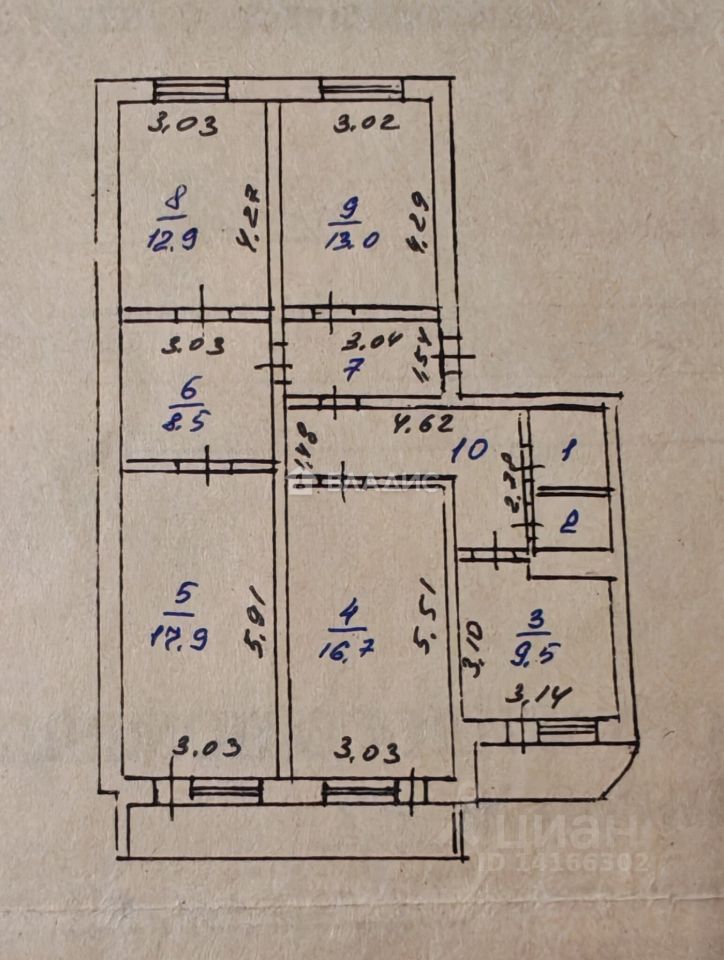 3.03
3.02
8
12.9
4.27
9
13.0
4.29
3.03
3.04
7
1.54
6
8.5
4.62
10
1.48
1
2.38
2
ВЛАДИС
5
17.9
5.91
4
16.7
5.51
3
9.5
3.10
3.14
3.03
3.03
циан
ID 14166302